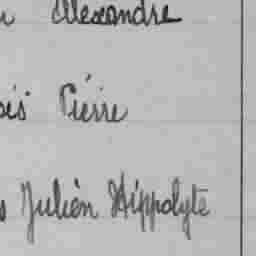 Alexandre
Pierre
Julien Hippolyte